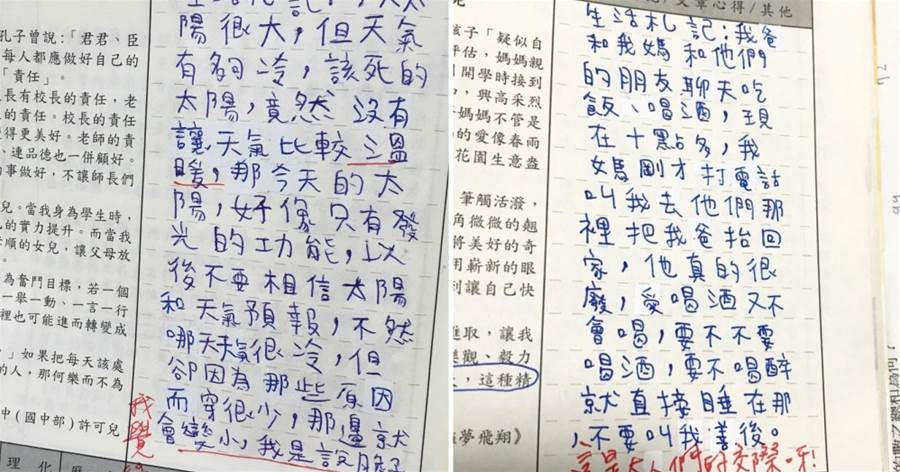 孔子曾說:「君君、臣
每人都應做好自己的
「責任」。
長有校長的責任，老
的責任。校長的責任
得更美好。老師的責
、連品德也一併顧好。
事做好，不讓師長們
兒。當我身為學生時，
的實力提升。而當我
順的女兒，讓父母放
為奮鬥目標，若一個
一舉一動、一言一行
裡也可能進而轉變成
」如果把每天該處
的人，那何樂而不為
中(國中部)許可兒
理 化
陽很大，但天氣
有夠冷，該死的
太陽，竟然沒有
讓天氣比較溫
暖，那今天的太
陽，好像只有發
光的功能，以
後不要相信太陽
和天氣預報，不然
哪天天氣很冷，但
卻因為那些原因
而穿很少，那邊就
會變小，我是說膽子
我覺
文章心得/其他
孩子「疑似自
評估，媽媽親
開學時接到
，興高采烈
媽媽不管是
的愛像春雨
花園生意盎
筆觸活潑，
角微微的翹
將美好的奇
用嶄新的眼
到讓自己快
進取，讓我
樂觀、毅力
，這種精
夢飛翔》
生活札記:我爸
和我媽和他們
的朋友聊天吃
飯、喝酒，現
在十點多，我
媽剛才打電話
叫我去他們那
裡把我爸抬回
家，他真的很
廢，愛喝酒又不
會喝，要不不要
喝酒，要不喝醉
就直接睡在那
，不要叫我善後。
這是大人們的交際呀!